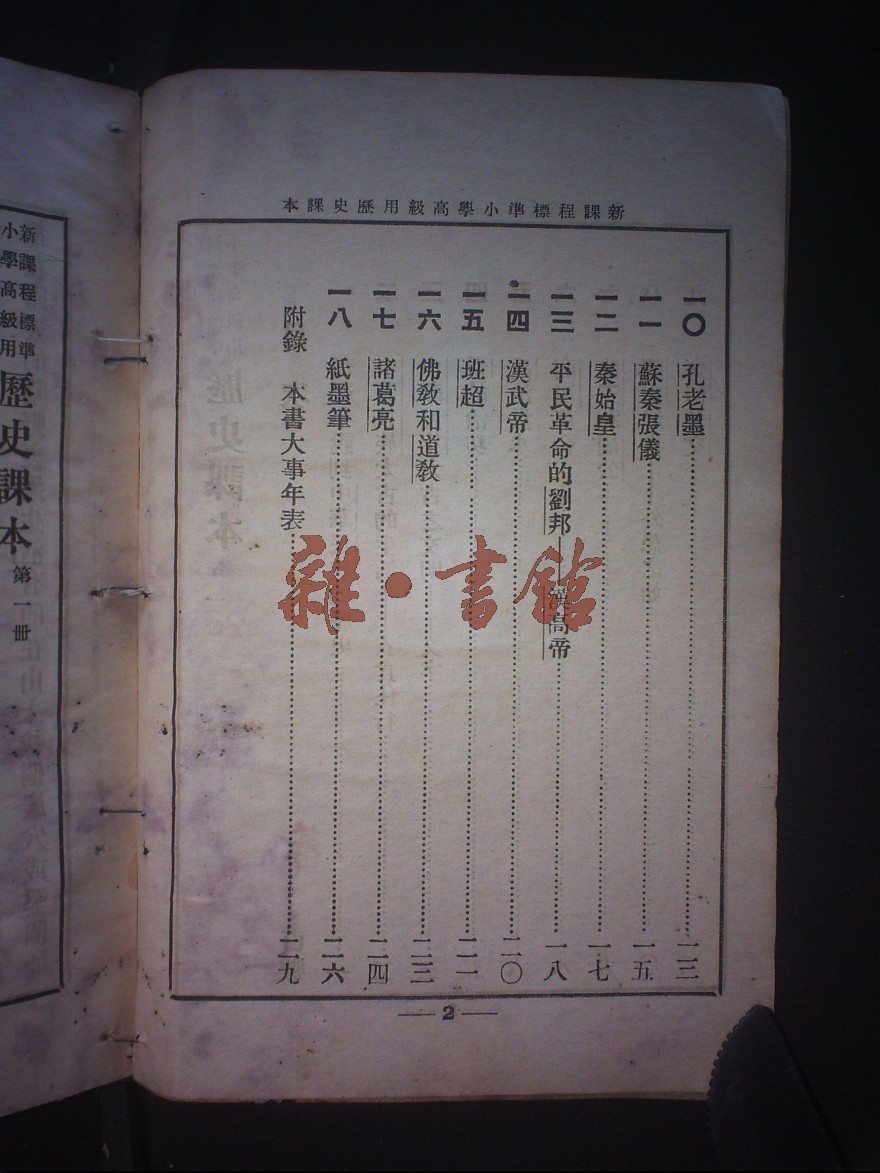 新課程標準小學高級用歷史課本
一〇 孔老墨……一三
一一 蘇秦張儀……一五
一二 秦始皇……一七
一三 平民革命的劉邦——漢高帝……一八
一四 漢武帝……二〇
一五 班超……二一
一六 佛教和道教……二三
一七 諸葛亮……二四
一八 紙墨筆……二六
附錄 本書大事年表……二九
—2—
新課程標準
小學高級用
歷史課本
第一册
雜·書館